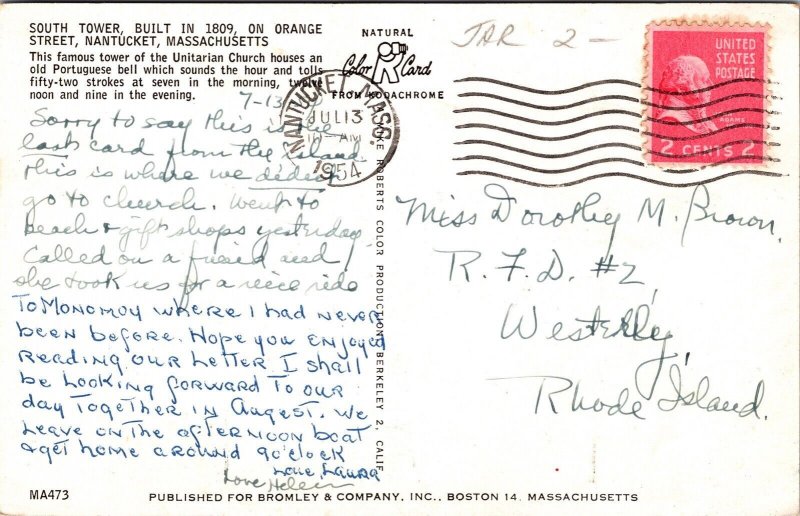 SOUTH TOWER, BUILT IN 1809, ON ORANGE
STREET, NANTUCKET, MASSACHUSETTS
This famous tower of the Unitarian Church houses an
old Portuguese bell which sounds the hour and tolls
fifty-two strokes at seven in the morning, twelve
noon and nine in the evening.
7-13
Sorry to say this is the
last card from the island.
This is where we didn't
go to church. Went to
beach & gift shops yesterday.
Called on a friend and
she took us for a nice ride
To Monomoy where I had never
been before. Hope you enjoyed
reading our letter I shall
be looking forward to our
day together in Augest. We
leave on the afternoon boat
& get home around 9 o'clock
Love Laura
Love Helen
MA473
NATURAL
Color Card
FROM KODACHROME
NANTUCKET MASS.
JUL 13
AM
1954
MIKE ROBERTS COLOR PRODUCTIONS, BERKELEY 2, CALIF.
JAR 2 -
UNITED
STATES
POSTAGE
ADAMS
2 CENTS 2
Miss Dorothy M. Brown,
R. F. D. #2,
Westerly,
Rhode Island.
PUBLISHED FOR BROMLEY & COMPANY, INC., BOSTON 14, MASSACHUSETTS